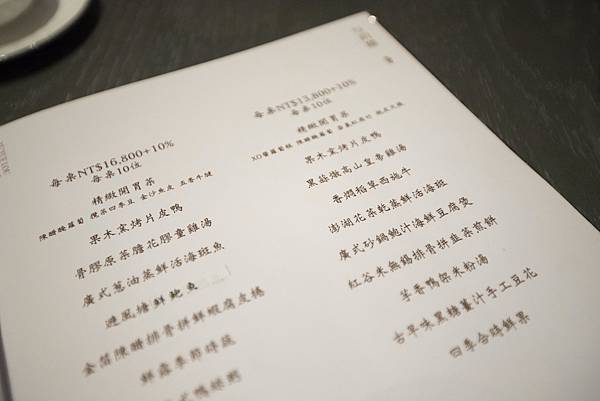 每桌NT$16,800+10%
每桌10位
精緻開胃菜
陳醋醃蘿蔔 欖菜四季豆 金沙魚皮 五香牛腱
果木窯烤片皮鴨
骨膠原茶膽花膠童雞湯
廣式蔥油蒸鮮活海斑魚
避風塘鮮鮑魚
金箔陳醋排骨拼鮮蝦腐皮捲
鮮露季節時蔬
每桌NT$13,800+10%
每桌10位
精緻開胃菜
果木窯烤片皮鴨
黑蒜燉高山皇帝雞湯
香燜稻草西施牛
澎湖花菜乾蒸鮮活海斑
廣式砂鍋鮑汁海鮮豆腐煲
紅谷米無錫排骨拼韭菜煎餅
芋香鴨架米粉湯
古早味黑糖薑汁手工豆花
四季合時鮮果